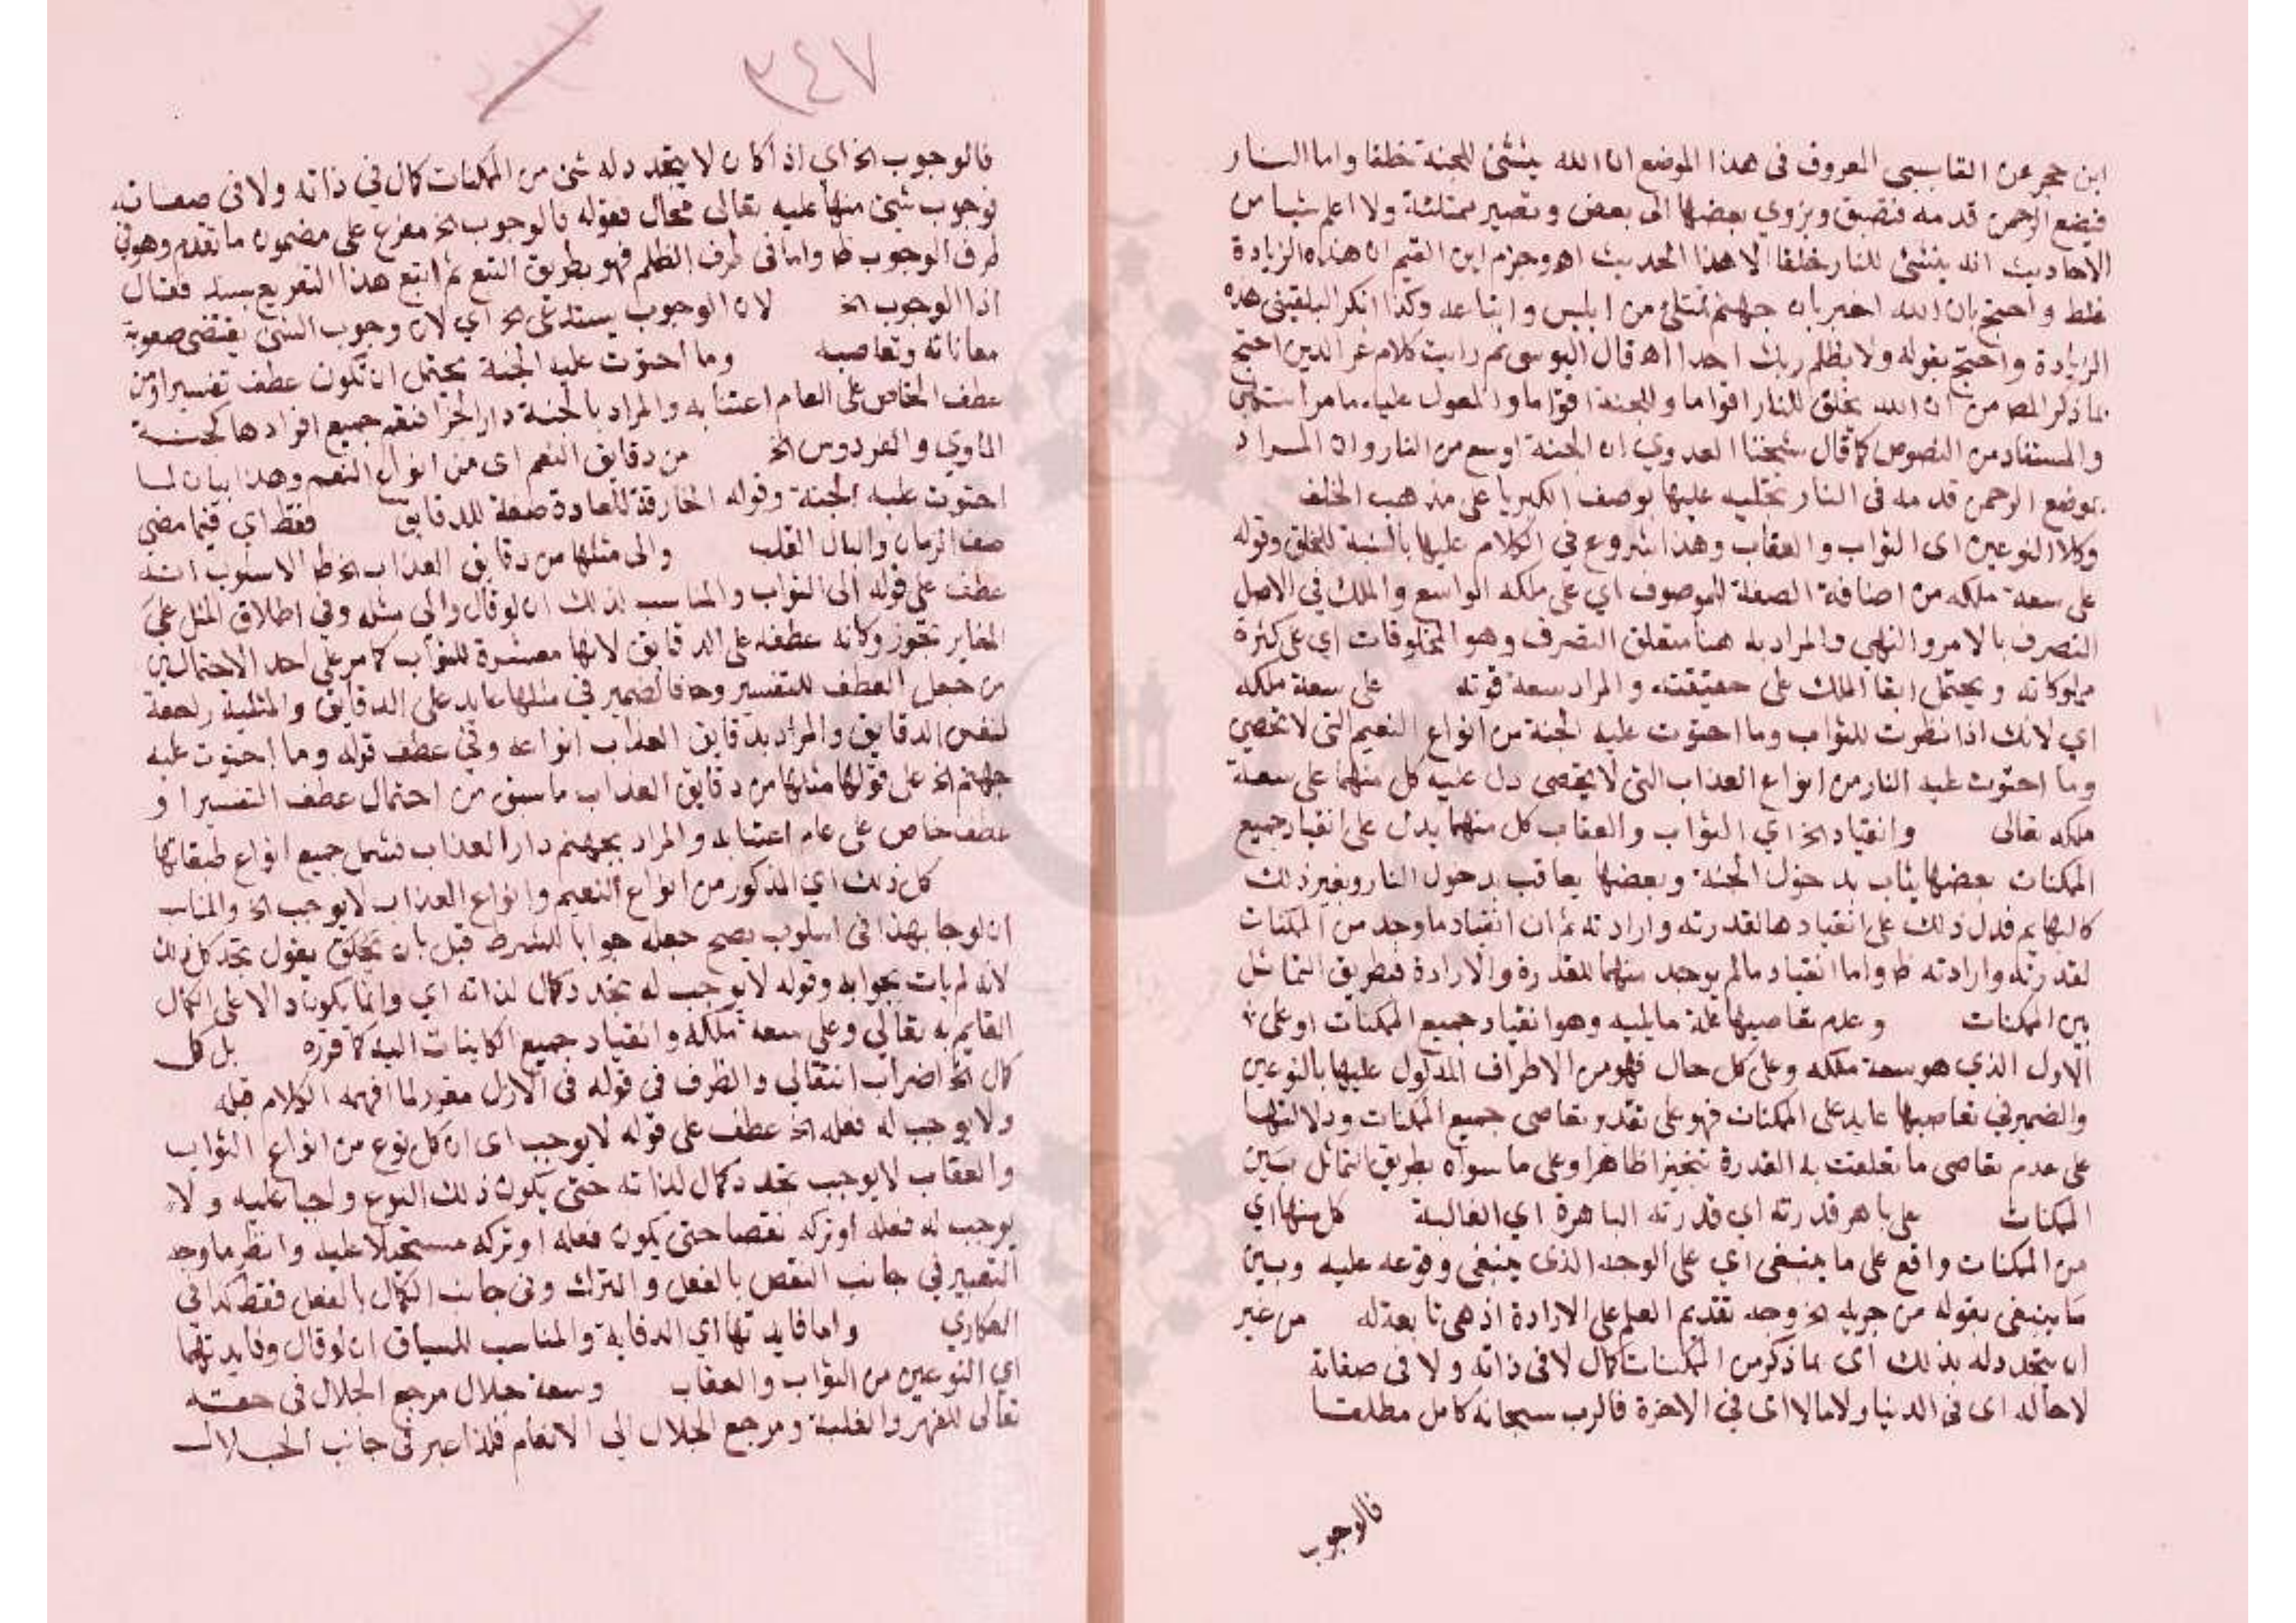 ابن حجر عن القابسي المعروف في هذا الموضع ان الله ينشئ للجنة خلقا واما النار
فيضع الرحمن قدمه فتضيق ويزوي بعضها الى بعض وتصير ممتلئة ولا اعلم شيا من
الاحاديث انه ينشئ للنار خلقا الا هذا الحديث اه وجزم ابن القيم ان هذه الزيادة
غلط واحتج بان الله اخبر بان جهنم تمتلئ من ابليس واتباعه وكذا انكر البلقيني هذه
الزيادة واحتج بقوله ولا يظلم ربك احدا اه قال اليوسي ثم رايت كلام عز الدين احتج
لما ذكر المص من ان الله يخلق للنار اقواما وللجنة اقواما والمعول عليه ما مر
والمستفاد من النصوص كما قال شيخنا العدوي ان الجنة اوسع من النار وان المراد
بوضع الرحمن قدمه في النار تجليه عليها بوصف الكبريا على مذهب الخلف
وكلا النوعين اى الثواب والعقاب وهذا شروع في الكلام عليها بالنسبة للخلق وقوله
على سعة ملكه من اضافة الصفة للموصوف اي على ملكه الواسع والملك في الاصل
التصرف بالامر والنهي والمراد به هنا متعلق التصرف وهو المخلوقات اي على كثرة
مملوكاته ويحتمل ابقا الملك على حقيقته والمراد سعة قوته على سعة ملكه
اي لانك اذا نظرت للثواب وما احتوت عليه الجنة من انواع النعيم التى لا تحصي
وما احتوت عليه النار من انواع العذاب التى لا تحصى دل عليه كل منهما على سعة
ملكه تعالى وانقياد الخ اي الثواب والعقاب كل منهما يدل على انقياد جميع
الممكنات بعضها يثاب بدخول الجنة وبعضها يعاقب بدخول النار وبغير ذلك
كالبهايم فدل ذلك على انقيادها لقدرته وارادته ثم ان انقياد ما وجد من الممكنات
لقدرته وارادته ظ واما انقياد ما لم يوجد منهما للقدرة والارادة فبطريق التماثل
بين الممكنات وعدم تعاصيها علة ما يليه وهو انقياد جميع الممكنات او على
الاول الذي هو سعة ملكه وعلى كل حال فهو من الاطراف المدلول عليها بالنوعين
والضمير في تعاصيها عايد على الممكنات فهو على تقدير تعاصى جميع الممكنات ودلالتها
على عدم تعاصى ما تعلقت به القدرة تنجيزا ظاهرا وعلى ما سواه بطريق التماثل بين
الممكنات على باهر قدرته اي قدرته الباهرة اي الغالبة كل منها اي
من الممكنات واقع على ما ينبغى اي على الوجه الذى ينبغى وقوعه عليه وبين
ما ينبغى بقوله من جريه الخ وجه تقديم العلم على الارادة اذ هى تابعة له من غير
ان يتجدد له بذلك اى بما ذكر من الممكنات كمال لا فى ذاته ولا فى صفاته
لا حالا اى فى الدنيا ولا مالا اى في الاخرة فالرب سبحانه كامل مطلقا
فالوجوب
٣٤٧
فالوجوب الخ اي اذا كان لا يتجدد له شئ من الممكنات كمال في ذاته ولا فى صفاته
فوجوب شئ منها عليه تعالى محال فقوله فالوجوب الخ مفرع على مضمون ما تقدم وهو في
طرف الوجوب ظ واما فى طرف الظلم فهو بطريق التبع ثم اتبع هذا التفريع بسنده فقال
اذا الوجوب الخ لان الوجوب يستدعى الخ اي لان وجوب الشئ يقتضى صعوبة
معاناته وتعاصيه وما احتوت عليه الجنة يحتمل ان تكون عطف تفسير او من
عطف الخاص على العام اعتنا به والمراد بالجنة دار الجزا فتعم جميع افرادها كجنة
الماوي والفردوس الخ من دقايق النعم اى من انواع النعم وهذا بيان لما
احتوت عليه الجنة وقوله الخارقة للعادة صفة للدقايق فقط اي فيما مضى
من الزمان والبال القلب والى مثلها من دقايق العذاب الخ ظ الاسلوب انه
عطف على قوله الى الثواب والمناسب لذلك ان لو قال والى مثله وفي اطلاق المثل على
المغاير تجوز وكانه عطفه على الدقايق لانها مفسرة للثواب كما مر على احد الاحتمالين
من جعل العطف للتفسير وح فالضمير في مثلها عايد على الدقايق والمثلية راجعة
لنفس الدقايق والمراد بدقايق العذاب انواعه وفي عطف قوله وما احتوت عليه
جهنم الخ على قوله مثلها من دقايق العذاب ما سبق من احتمال عطف التفسير او
عطف خاص على عام اعتنا به والمراد بجهنم دار العذاب فتشمل جميع انواع طبقاتها
كل ذلك اي المذكور من انواع النعيم وانواع العذاب لا يوجب الخ والمناسب
ان لو جا بهذا فى اسلوب يصح جعله جوابا للشرط قبل بان يقول تجد كل ذلك
لانه لم يات بجوابه وقوله لا يوجب له تجدد كمال لذاته اي وانما يكون دالا على الكمال
القايم به تعالي وعلى سعة ملكه وانقياد جميع الكاينات اليه كما قرره بل كل
كمال الخ اضراب انتقالي والظرف فى قوله فى الازل مقرر لما افهمه الكلام قبله
ولا يوجب له فعله الخ عطف على قوله لا يوجب اى ان كل نوع من انواع الثواب
والعقاب لا يوجب تجدد كمال لذاته حتى يكون ذلك النوع واجبا عليه ولا
يوجب له فعله او تركه نقصا حتى يكون فعله او تركه مستحيلا عليه وانظر ما وجه
التعبير في جانب النقص بالفعل والترك وفى جانب الكمال بالفعل فقط كذا في
العكاري واما فايدتها اي الدقايق والمناسب للسياق ان لو قال وفايدتهما
اي النوعين من الثواب والعقاب وسعة جلال مرجع الجلال فى حقه
تعالى للقهر والغلبة ومرجع الجلال الي الانعام فلذا عبر فى جانب الجلال